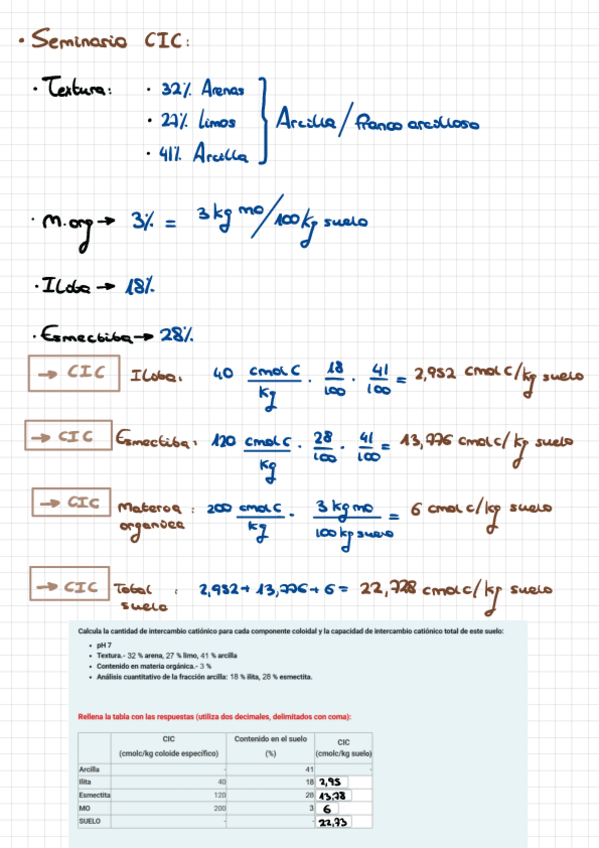 · Seminario CIC:
· Textura: · 32% Arenas
· 27% Limos
· 41% Arcilla
Arcilla / franco arcilloso
· M.org → 3% = 3 kg mo / 100 kg suelo
· Ilita → 18%
· Esmectita → 28%
→ CIC Ilita: 40 cmol C / kg · 18/100 · 41/100 = 2,952 cmol C/kg suelo
→ CIC Esmectita: 120 cmol C / kg · 28/100 · 41/100 = 13,776 cmol C/kg suelo
→ CIC Materia organica : 200 cmol C / kg · 3 kg mo / 100 kg suelo = 6 cmol C/kg suelo
→ CIC Total suelo : 2,952 + 13,776 + 6 = 22,728 cmol C/kg suelo
Calcula la cantidad de intercambio catiónico para cada componente coloidal y la capacidad de intercambio catiónico total de este suelo:
• pH 7
• Textura.- 32 % arena, 27 % limo, 41 % arcilla
• Contenido en materia orgánica.- 3 %
• Análisis cuantitativo de la fracción arcilla: 18 % ilita, 28 % esmectita.
Rellena la tabla con las respuestas (utiliza dos decimales, delimitados con coma):
CIC Contenido en el suelo CIC
(cmolc/kg coloide específico) (%) (cmolc/kg suelo)
Arcilla - 41 -
Ilita 40 18 2,95
Esmectita 120 28 13,78
MO 200 3 6
SUELO - - 22,73